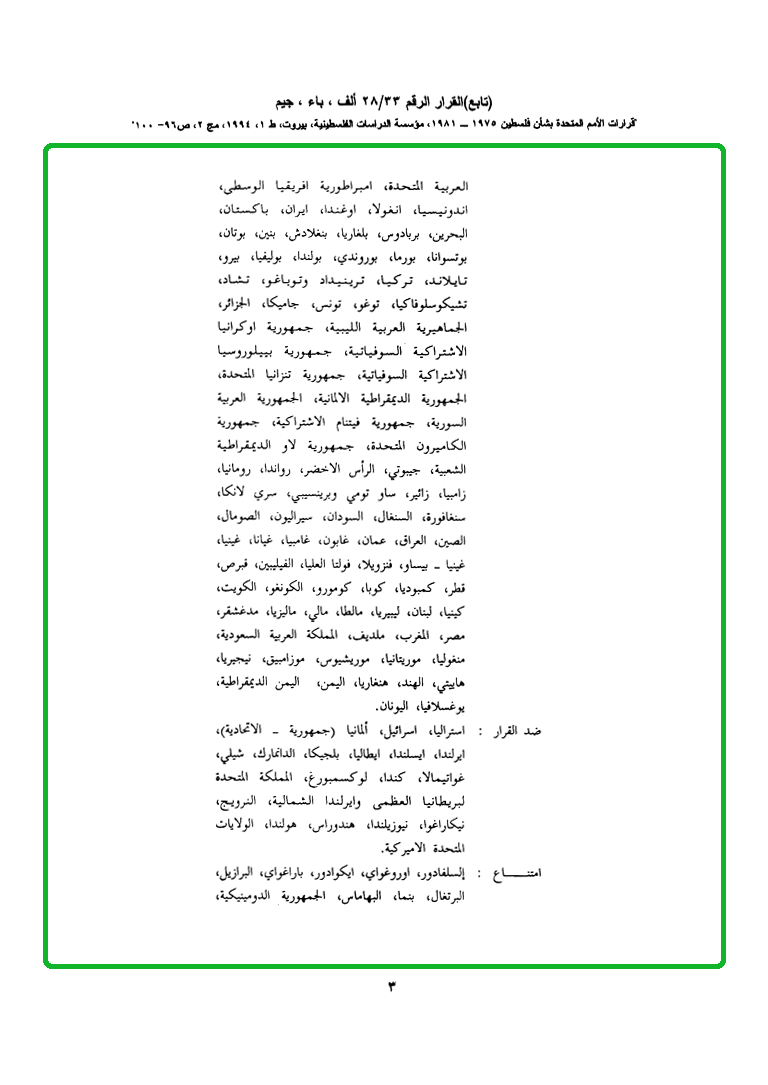 (تابع)القرار الرقم ٢٨/٣٣ ألف ، باء ، جيم
"قرارات الأمم المتحدة بشأن فلسطين ١٩٧٥ ــ ١٩٨١، مؤسسة الدراسات الفلسطينية، بيروت، ط ١، ١٩٩٤، مج ٢، ص٩٦- ١٠٠"
العربية المتحدة، امبراطورية افريقيا الوسطى،
اندونيسيا، انغولا، اوغندا، ايران، باكستان،
البحرين، بربادوس، بلغاريا، بنغلادش، بنين، بوتان،
بوتسوانا، بورما، بوروندي، بولندا، بوليفيا، بيرو،
تايلاند، تركيا، ترينيداد وتوباغو، تشاد،
تشيكوسلوفاكيا، توغو، تونس، جاميكا، الجزائر،
الجماهيرية العربية الليبية، جمهورية اوكرانيا
الاشتراكية السوفياتية، جمهورية بييلوروسيا
الاشتراكية السوفياتية، جمهورية تنزانيا المتحدة،
الجمهورية الديمقراطية الالمانية، الجمهورية العربية
السورية، جمهورية فيتنام الاشتراكية، جمهورية
الكاميرون المتحدة، جمهورية لاو الديمقراطية
الشعبية، جيبوتي، الرأس الاخضر، رواندا، رومانيا،
زامبيا، زائير، ساو تومي وبرينسيبي، سري لانكا،
سنغافورة، السنغال، السودان، سيراليون، الصومال،
الصين، العراق، عمان، غابون، غامبيا، غيانا، غينيا،
غينيا ــ بيساو، فنزويلا، فولتا العليا، الفيليبين، قبرص،
قطر، كمبوديا، كوبا، كومورو، الكونغو، الكويت،
كينيا، لبنان، ليبيريا، مالطا، مالي، ماليزيا، مدغشقر،
مصر، المغرب، ملديف، المملكة العربية السعودية،
منغوليا، موريتانيا، موريشيوس، موزامبيق، نيجيريا،
هاييتي، الهند، هنغاريا، اليمن، اليمن الديمقراطية،
يوغسلافيا، اليونان.
ضد القرار : استراليا، اسرائيل، ألمانيا (جمهورية ــ الاتحادية)،
ايرلندا، ايسلندا، ايطاليا، بلجيكا، الدانمارك، شيلي،
غواتيمالا، كندا، لوكسمبورغ، المملكة المتحدة
لبريطانيا العظمى وايرلندا الشمالية، النرويج،
نيكاراغوا، نيوزيلندا، هندوراس، هولندا، الولايات
المتحدة الاميركية.
امتنــــــاع : إلسلفادور، اوروغواي، ايكوادور، باراغواي، البرازيل،
البرتغال، بنما، البهاماس، الجمهورية الدومينيكية،
٣